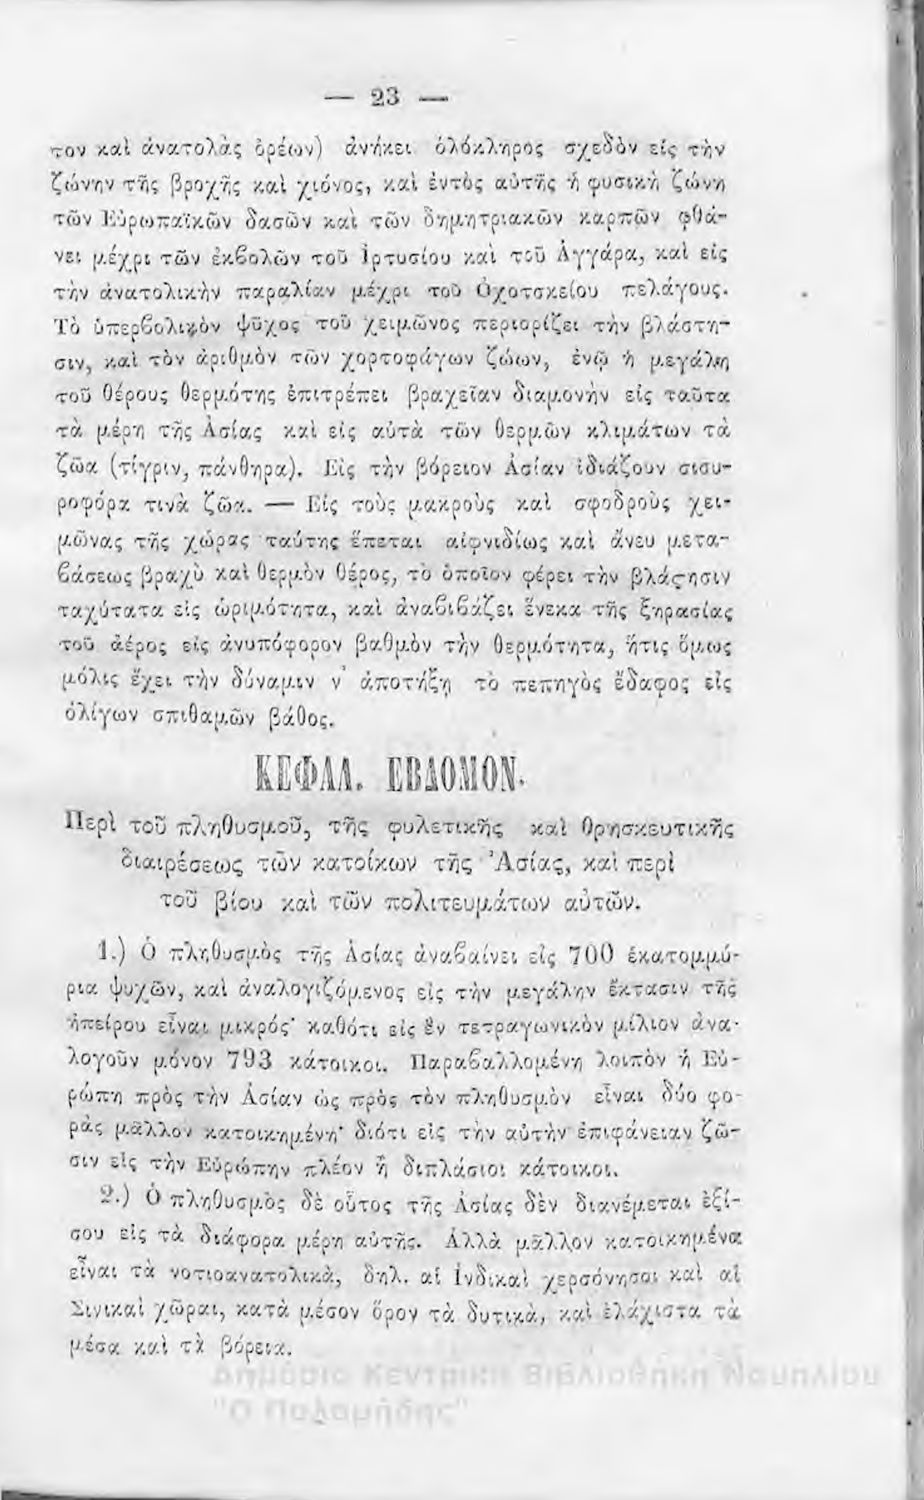 — 23 —
τον καὶ ἀνατολὰς ὀρέων) ἀνήκει ὁλόκληρος σχεδὸν εἰς τὴν
ζώνην τῆς βροχῆς καὶ χιόνος, καὶ ἐντὸς αὐτῆς ἡ φυσικὴ ζώνη
τῶν Εὐρωπαϊκῶν δασῶν καὶ τῶν δημητριακῶν καρπῶν φθά-
νει μέχρι τῶν ἐκβολῶν τοῦ Ἰρτυσίου καὶ τοῦ Ἀγγάρα, καὶ εἰς
τὴν ἀνατολικὴν παραλίαν μέχρι τοῦ Ὀχοτσκείου πελάγους.
Τὸ ὑπερβολικὸν ψῦχος τοῦ χειμῶνος περιορίζει τὴν βλάστη-
σιν, καὶ τὸν ἀριθμὸν τῶν χορτοφάγων ζώων, ἐνῷ ἡ μεγάλη
τοῦ θέρους θερμότης ἐπιτρέπει βραχεῖαν διαμονὴν εἰς ταῦτα
τὰ μέρη τῆς Ἀσίας καὶ εἰς αὐτὰ τῶν θερμῶν κλιμάτων τὰ
ζῶα (τίγριν, πάνθηρα). Εἰς τὴν βόρειον Ἀσίαν ἰδιάζουν σισυ-
ροφόρα τινὰ ζῶα. — Εἰς τοὺς μακροὺς καὶ σφοδροὺς χει-
μῶνας τῆς χώρας ταύτης ἕπεται αἰφνιδίως καὶ ἄνευ μετα-
βάσεως βραχὺ καὶ θερμὸν θέρος, τὸ ὁποῖον φέρει τὴν βλάστησιν
ταχύτατα εἰς ὡριμότητα, καὶ ἀναβιβάζει ἕνεκα τῆς ξηρασίας
τοῦ ἀέρος εἰς ἀνυπόφορον βαθμὸν τὴν θερμότητα, ἥτις ὅμως
μόλις ἔχει τὴν δύναμιν ν' ἀποτήξῃ τὸ πεπηγὸς ἔδαφος εἰς
ὀλίγων σπιθαμῶν βάθος.
ΚΕΦΑΛ. ΕΒΔΟΜΟΝ.
Περὶ τοῦ πληθυσμοῦ, τῆς φυλετικῆς καὶ θρησκευτικῆς
διαιρέσεως τῶν κατοίκων τῆς Ἀσίας, καὶ περὶ
τοῦ βίου καὶ τῶν πολιτευμάτων αὐτῶν.
1.) Ὁ πληθυσμὸς τῆς Ἀσίας ἀναβαίνει εἰς 700 ἑκατομμύ-
ρια ψυχῶν, καὶ ἀναλογιζόμενος εἰς τὴν μεγάλην ἔκτασιν τῆς
ἠπείρου εἶναι μικρός· καθότι εἰς ἓν τετραγωνικὸν μίλιον ἀνα-
λογοῦν μόνον 793 κάτοικοι. Παραβαλλομένη λοιπὸν ἡ Εὐ-
ρώπη πρὸς τὴν Ἀσίαν ὡς πρὸς τὸν πληθυσμὸν εἶναι δύο φο-
ρὰς μᾶλλον κατοικημένη· διότι εἰς τὴν αὐτὴν ἐπιφάνειαν ζῶ-
σιν εἰς τὴν Εὐρώπην πλέον ἢ διπλάσιοι κάτοικοι.
2.) Ὁ πληθυσμὸς δὲ οὗτος τῆς Ἀσίας δὲν διανέμεται ἐξί-
σου εἰς τὰ διάφορα μέρη αὐτῆς. Ἀλλὰ μᾶλλον κατοικημένα
εἶναι τὰ νοτιοανατολικὰ, δηλ. αἱ Ἰνδικαὶ χερσόνησοι καὶ αἱ
Σινικαὶ χῶραι, κατὰ μέσον ὅρον τὰ δυτικὰ, καὶ ἐλάχιστα τὰ
μέσα καὶ τὰ βόρεια.
Δημόσια Κεντρική Βιβλιοθήκη Ναυπλίου
"Ο Παλαμήδης"